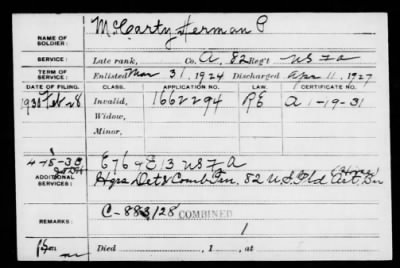 NAME OF SOLDIER: McCarty, Herman P
SERVICE: Late rank, Co. A, 82 Reg't US F A
TERM OF SERVICE: Enlisted Mar 31, 1924 Discharged Apr 11, 1927
DATE OF FILING. CLASS. APPLICATION NO. LAW. CERTIFICATE NO.
1931 Feb 28 Invalid, 1662294 A 1-19-31
Widow,
Minor,
4-15-38 E 76 & E 13 US F A
ADDITIONAL SERVICES: Hqrs Det & Comb Tn, 82 U.S. Fld Art. Bn (Horse)
REMARKS: C-883,128 COMBINED
Died , 1 , at